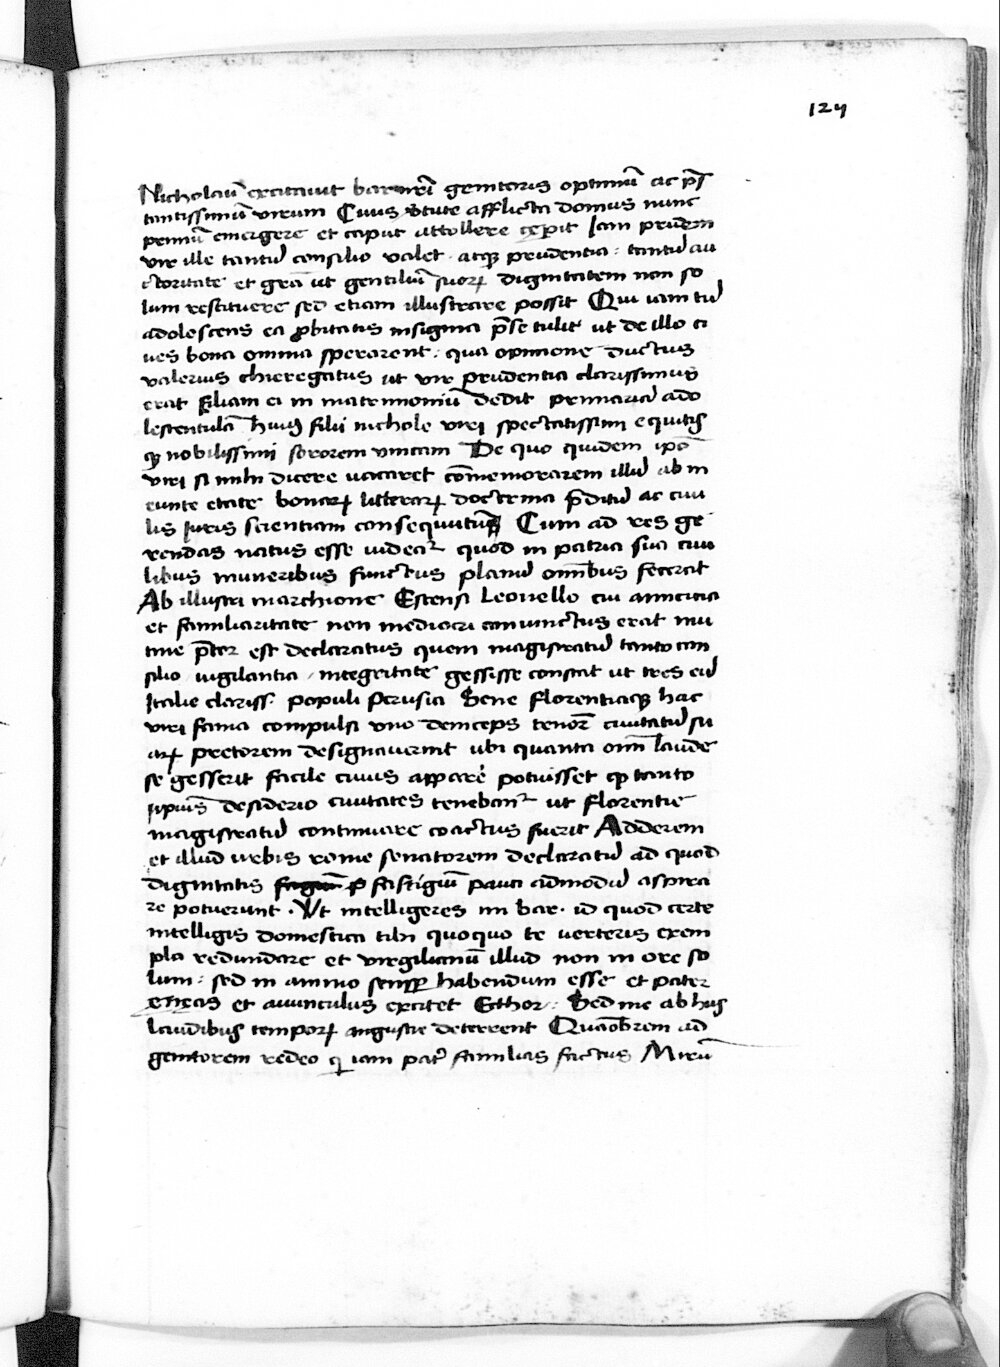 124
Nicholaū excitauit bar nr̄i genitoris optimū ac p̄s
tantissimū virum Cuius v̄tute afflicta domus nunc
primū emergere et caput attollere cępit Iam prudem
vir ille tantū consilio valet · atqꝫ prudentia : tantū au
ctoritate et grā ut gentiliū suoꝝ dignitatem non so
lum restituere sed etiam illustrare possit Qui iam tū
adolescens ea ꝓbitatis insignia p̄se tulit ut de illo ci
ues bona omnia sperarent : qua opinione ductus
valerius chieregatus ut vir prudentia clarissimus
erat filiam ei in matrimoniū dedit primariā ado
lescentulā huiꝰ filii nichole viri spectatissimi equitis
qꝫ nobilissimi sororem unicam De quo quidem
viri si mihi dicere uacaret cōmemorarem illū ab in
eunte etate bonaꝝ litteraꝝ doctrina p̄ditū ac ciui
lis iuris scientiam consequutus Cum ad res ge
rendas natus esse uideat᷑ quod in patria sua ciui
libus muneribus functus planū omībus fecerat
Ab illustri marchione Estensi Leonello cui amicitia
et familiaritate non mediocri coniunctus erat mu
tine p̄tor est declaratus quem magistratū tanto con
silio / vigilantia / integritate gessisse constat ut tres eiū
Italie clariss. populi Perusia Sene florentiaqꝫ hac
viri fama compulsi vno deinceps tenorē ciuitatū su
aꝝ pretorem designauerint ubi quanta omī laude
se gesserit facile ciuius apparē potuisset qꝫ tanto
ipiuˢ desiderio ciuitates tenebant᷑ ut florentie
magistratū continuare coactus fuerit Adderem
et illud urbis rome senatorem declaratū ad quod
dignitatis fastigiū pauci admodū aspira
re potuerunt · Vt intelligeres mi bar · id quod certe
intelligis domestica tibi quoquo te uerteris exem
pla redundare et virgilianū illud non in ore so
lum : sed in animo semꝑ habendum esse et pater
eneas et auunculus excitet Ecthor : Sed me ab huiꝰ
laudibus tempoꝝ angustie deterrent Quāobrem ad
genitorem redeo q iam pat᷑ familias factus Mirū